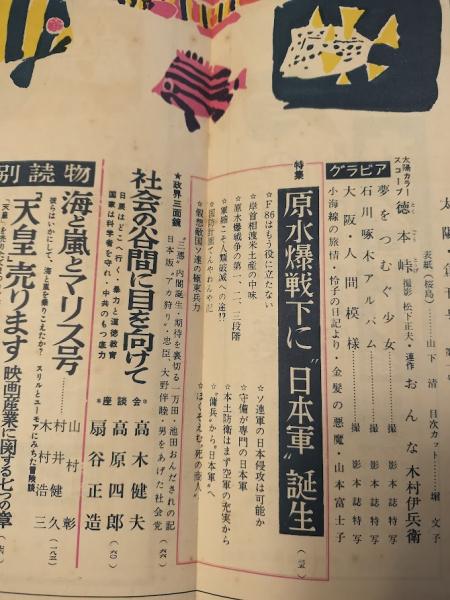 太陽創刊号
表紙(桜島)………山下清 目次カット………堀文子
太陽カラースコープ 徳本峠 とくごうとうげ 撮影 松下正夫・連作 おんな 木村伊兵衛
グラビア
夢をつむぐ少女………撮影 本誌特写
石川啄木アルバム………撮影 本誌特写
大阪・人間模様………撮影 本誌特写
小海線の旅情・怜子の日記より 金髪の悪魔・山本富士子
特集
原水爆戦下に〝日本軍〟誕生 (三五)
☆F86はもう役に立たない
☆岸首相渡米土産の中味
☆原水爆戦争の第一、二、三段階
☆軍縮こそ人類破滅への道!?
☆国防計画てんやわんや記
☆仮想敵国ソ連の極東兵力
☆ソ連軍の日本侵攻は可能か
☆守備が専門の日本軍
☆本土防衛はまず空軍の充実から
☆〝傭兵〟から〝日本軍〟へ
☆ほくそえむ〝死の商人〟
★政界三面鏡
〝三悪〟内閣誕生・期待を裏切る一万田・池田おんだされの記
日本版〝アカ狩り〟・忠臣、大野伴睦・男をあげた社会党 (六六)
社会の谷間に目を向けて
日展はどこへ行く・暴力と道徳教育
国家は科学者を守れ・中共のもつ底力
座談会
高木健夫
高原四郎 (六〇)
扇谷正造
別読物
海と嵐とマリス号………山村彰
彼らはいかにして、海と嵐を乗りこえたか? スリルとユーモアにみちた冒険談
「天皇」売ります………村井健久 (一八三)
映画産業に関する七つの章
木村浩三